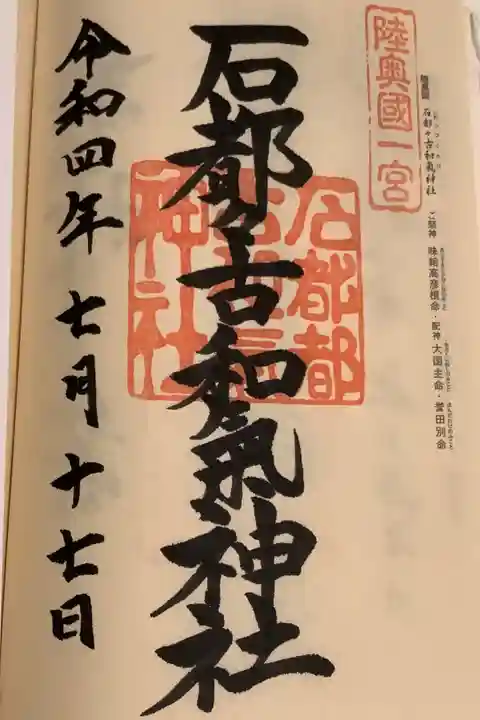 陸奥國一宮
石都々古和氣神社 ご祭神 味耜高彦根命・配神 大国主命・誉田別命
石都々古和氣神社
石都都
古和氣
神社
令和四年 七月 十七日